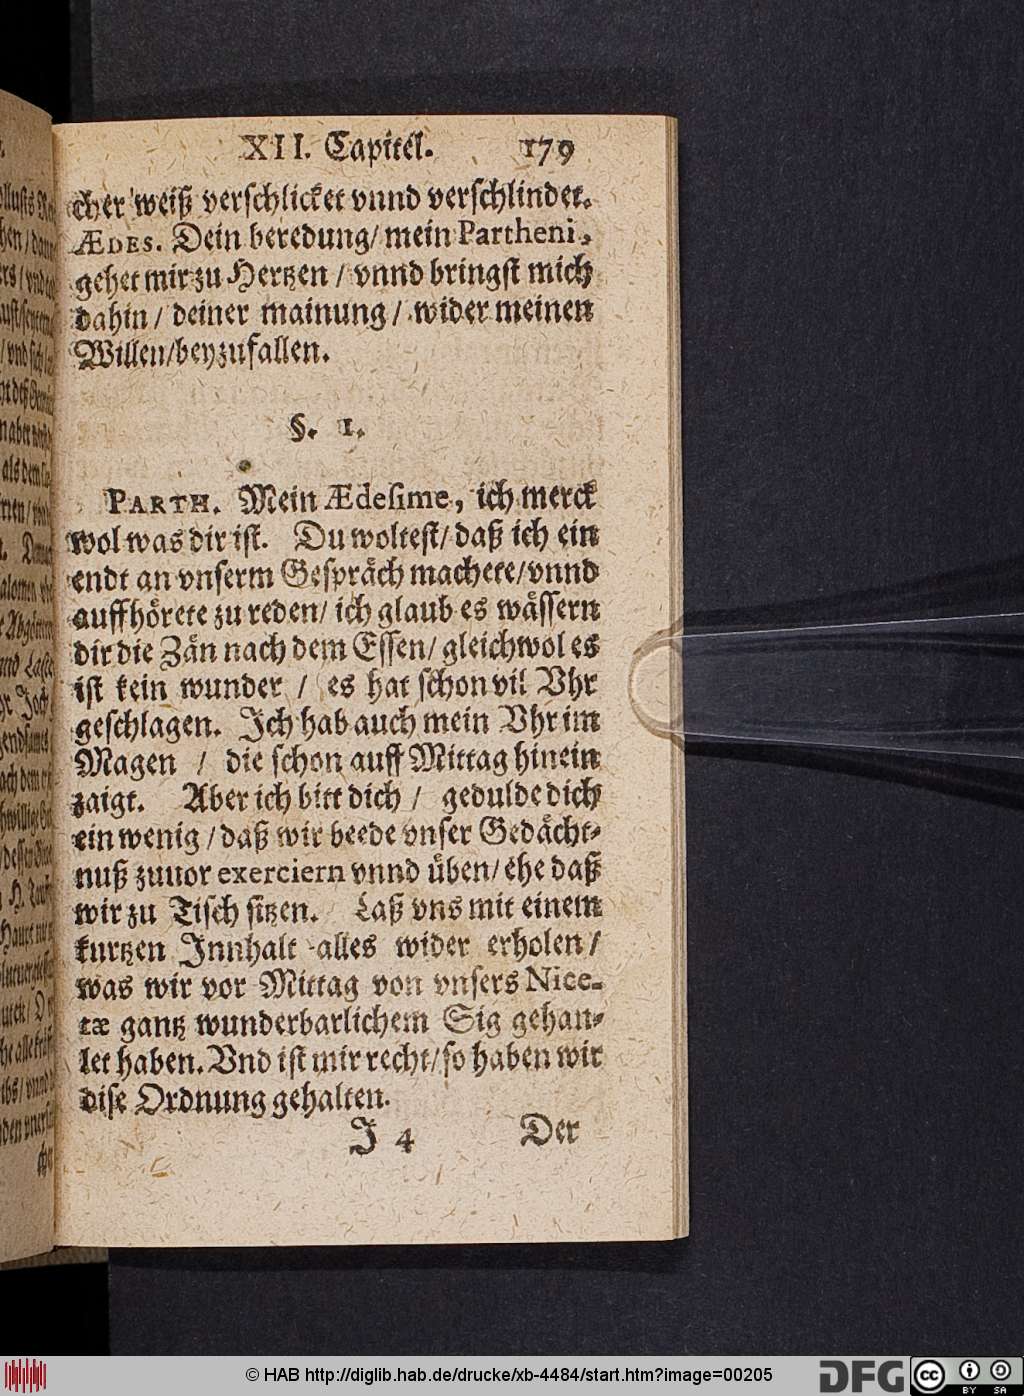 XII. Capitel. 179
cher weiß verschlicket vnnd verschlindet.
ÆDES. Dein beredung/ mein Partheni,
gehet mir zu Hertzen / vnnd bringst mich
dahin / deiner mainung / wider meinen
Willen/beyzufallen.
§. 1.
PARTH. Mein Ædesime, ich merck
wol was dir ist. Du woltest/ daß ich ein
endt an vnserm Gespräch machete/vnnd
auffhörete zu reden/ ich glaub es wässern
dir die Zän nach dem Essen/ gleichwol es
ist kein wunder / es hat schon vil Vhr
geschlagen. Ich hab auch mein Vhr im
Magen / die schon auff Mittag hinein
zaigt. Aber ich bitt dich / gedulde dich
ein wenig / daß wir beede vnser Gedächt-
nuß zuuor exerciern vnnd üben/ ehe daß
wir zu Tisch sitzen. Laß vns mit einem
kurtzen Innhalt alles wider erholen /
was wir vor Mittag von vnsers Nice-
tæ gantz wunderbarlichem Sig gehan-
let haben. Vnd ist mir recht/ so haben wir
dise Ordnung gehalten.
J 4 Der
© HAB http://diglib.hab.de/drucke/xb-4484/start.htm?image=00205
DFG
cc BY SA